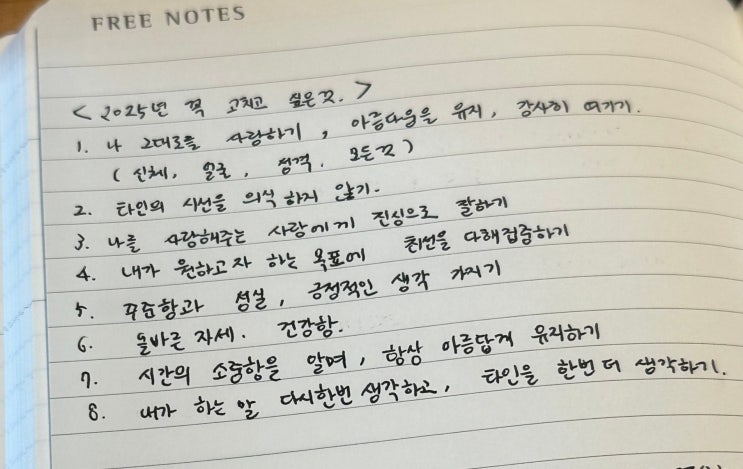 FREE NOTES
< 2025년 꼭 고치고 싶은것. >
1. 나 그대로를 사랑하기, 아름다움을 유지, 감사히 여기기.
(신체, 얼굴, 성격. 모든것)
2. 타인의 시선을 의식하지 않기.
3. 나를 사랑해주는 사람에게 진심으로 잘하기
4. 내가 원하고자 하는 목표에 최선을 다해집중하기
5. 꾸준함과 성실, 긍정적인 생각 가지기
6. 올바른 자세. 건강함.
7. 시간의 소중함을 알며, 항상 아름답게 유지하기
8. 내가 하는 말 다시한번 생각하고, 타인을 한번 더 생각하기.